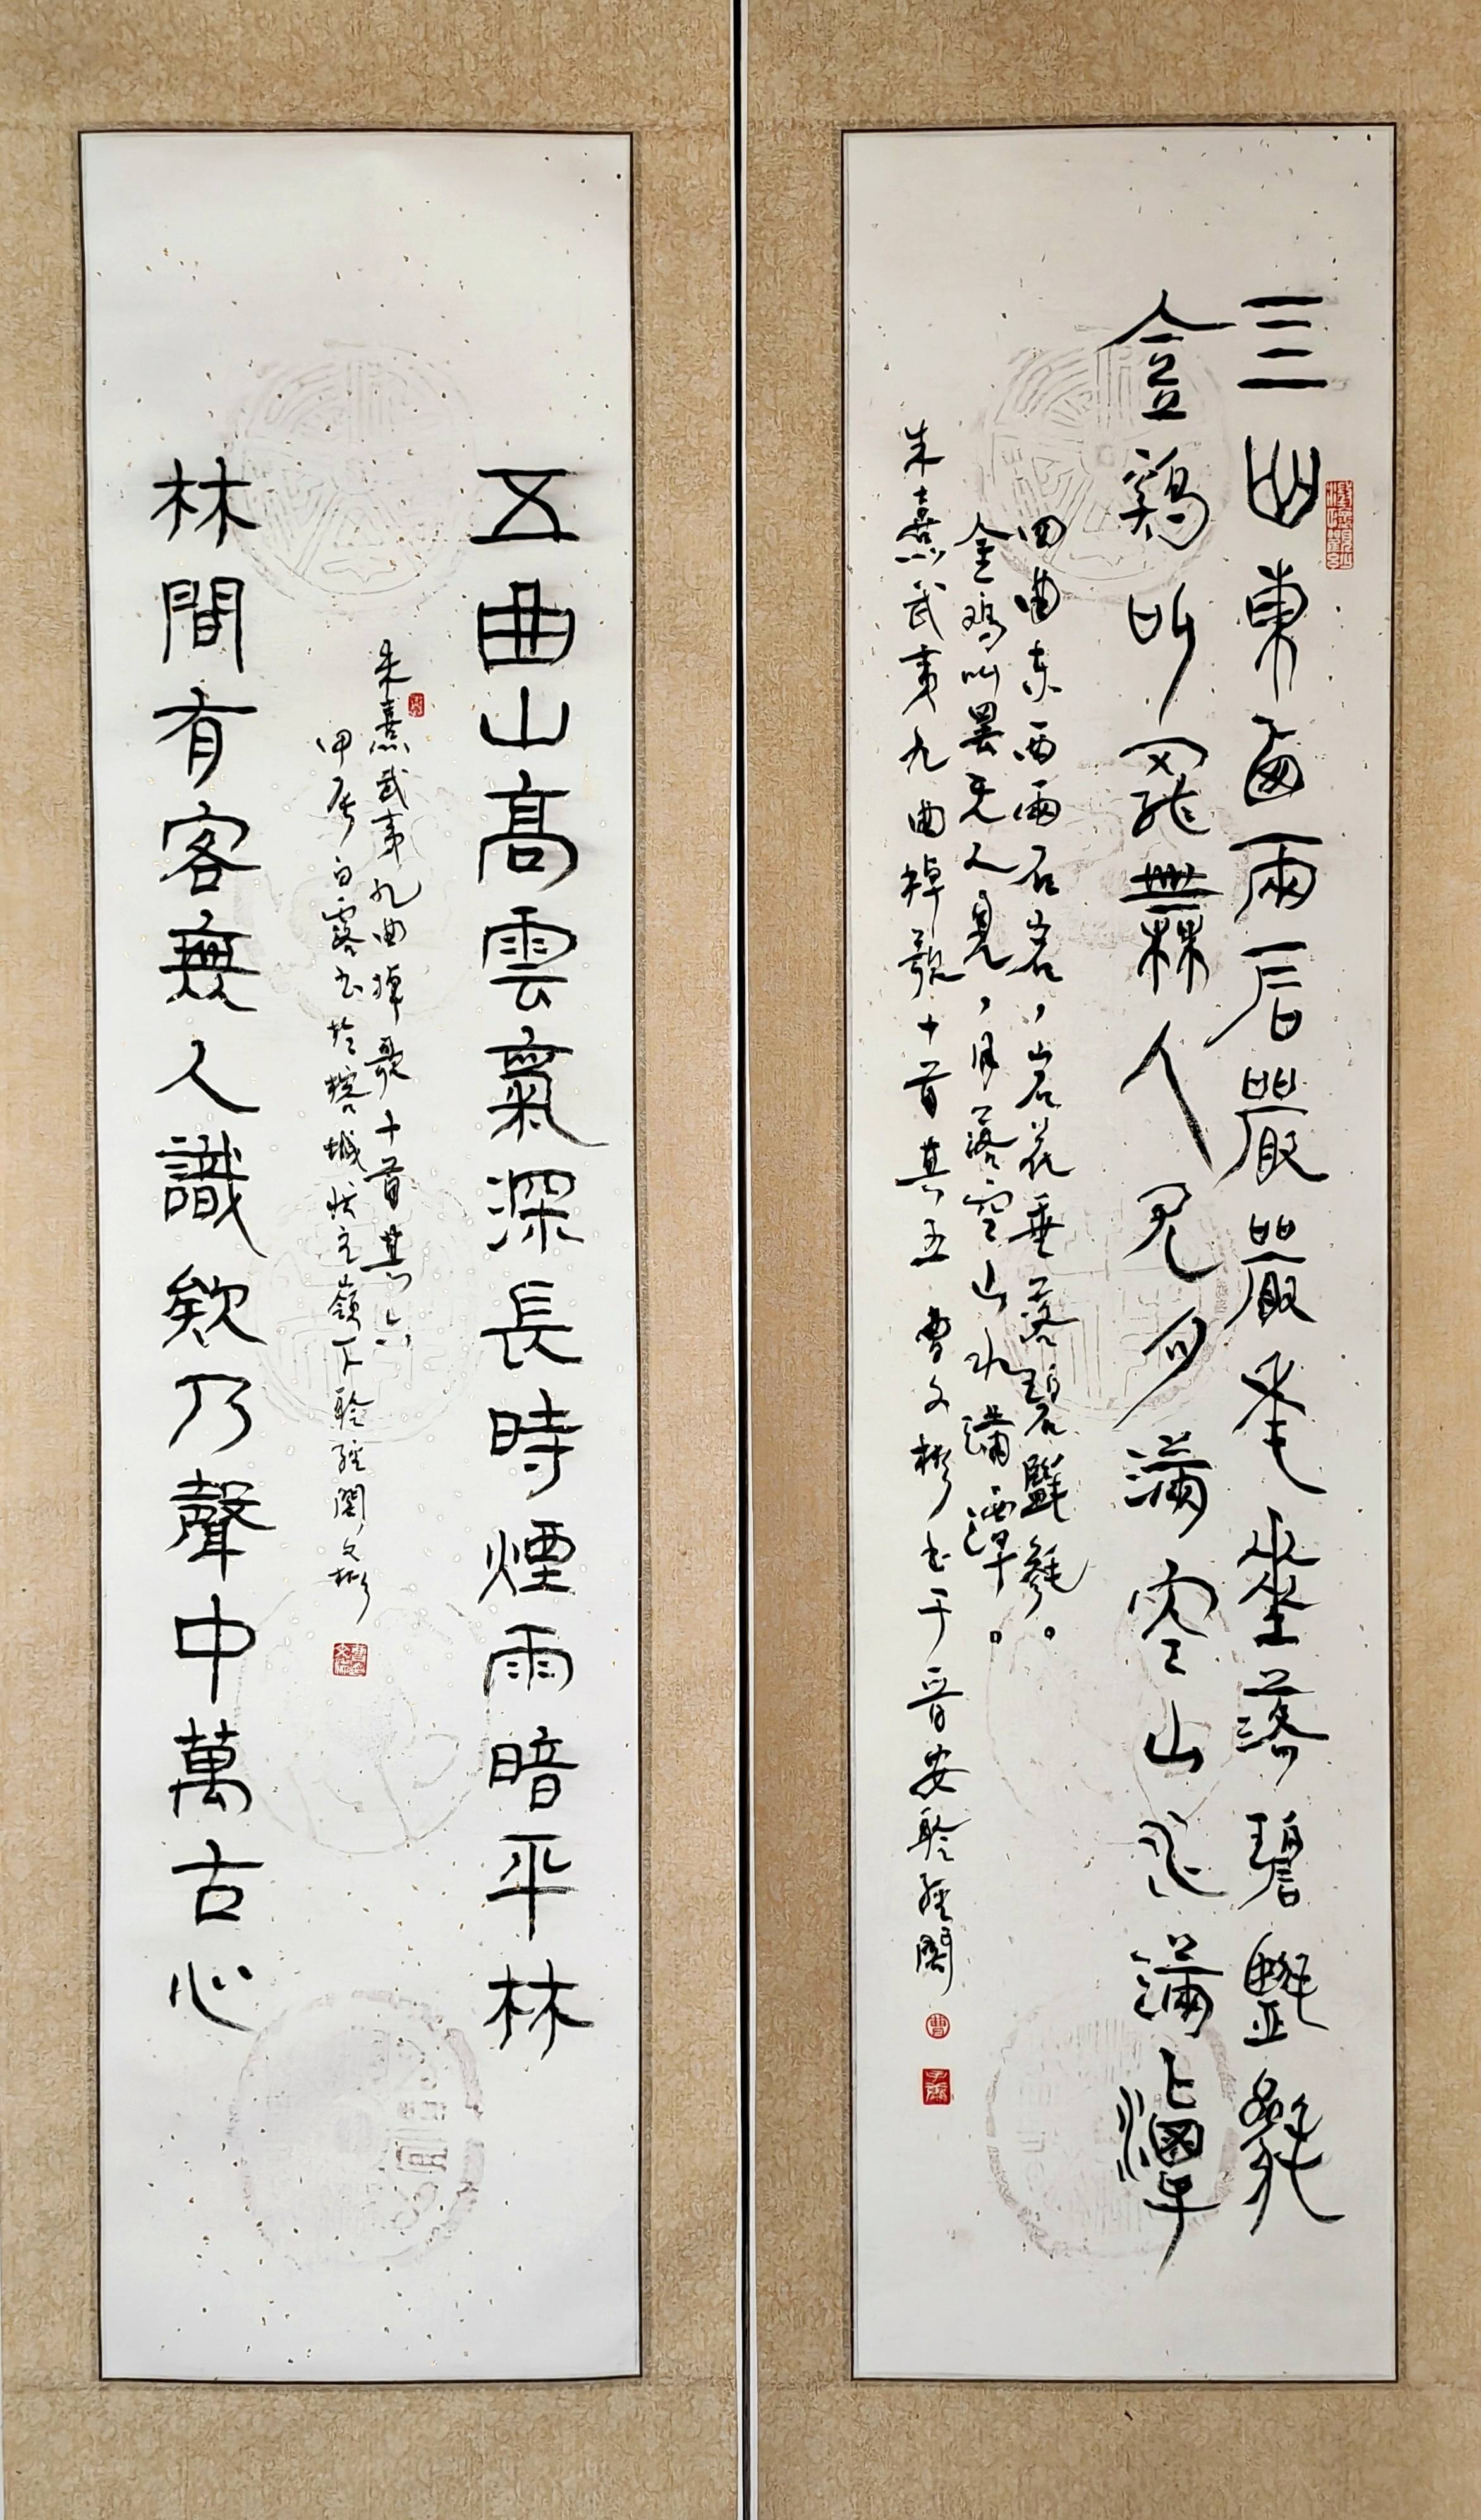 亖曲東西兩石巖巖花垂落碧㲯毿
金鷄叫罷無人見月滿空山水滿潭
四曲东西两石岩，岩花垂落碧㲯毵。
金鸡叫罢无人见，月落空山水满潭。
朱熹武夷九曲棹歌十首其五 曹文彬书于晋安聆经阁
曹
五曲山高雲氣深長時煙雨暗平林
朱熹武夷九曲棹歌十首其六
甲辰白露书於榕城状元嶺下聆經閣文彬
林間有客無人識欸乃聲中萬古心